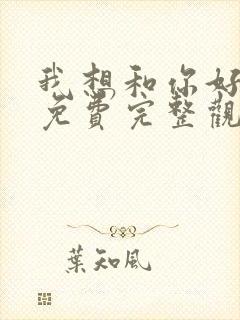 我想和你好
免費完整觀
葉知風